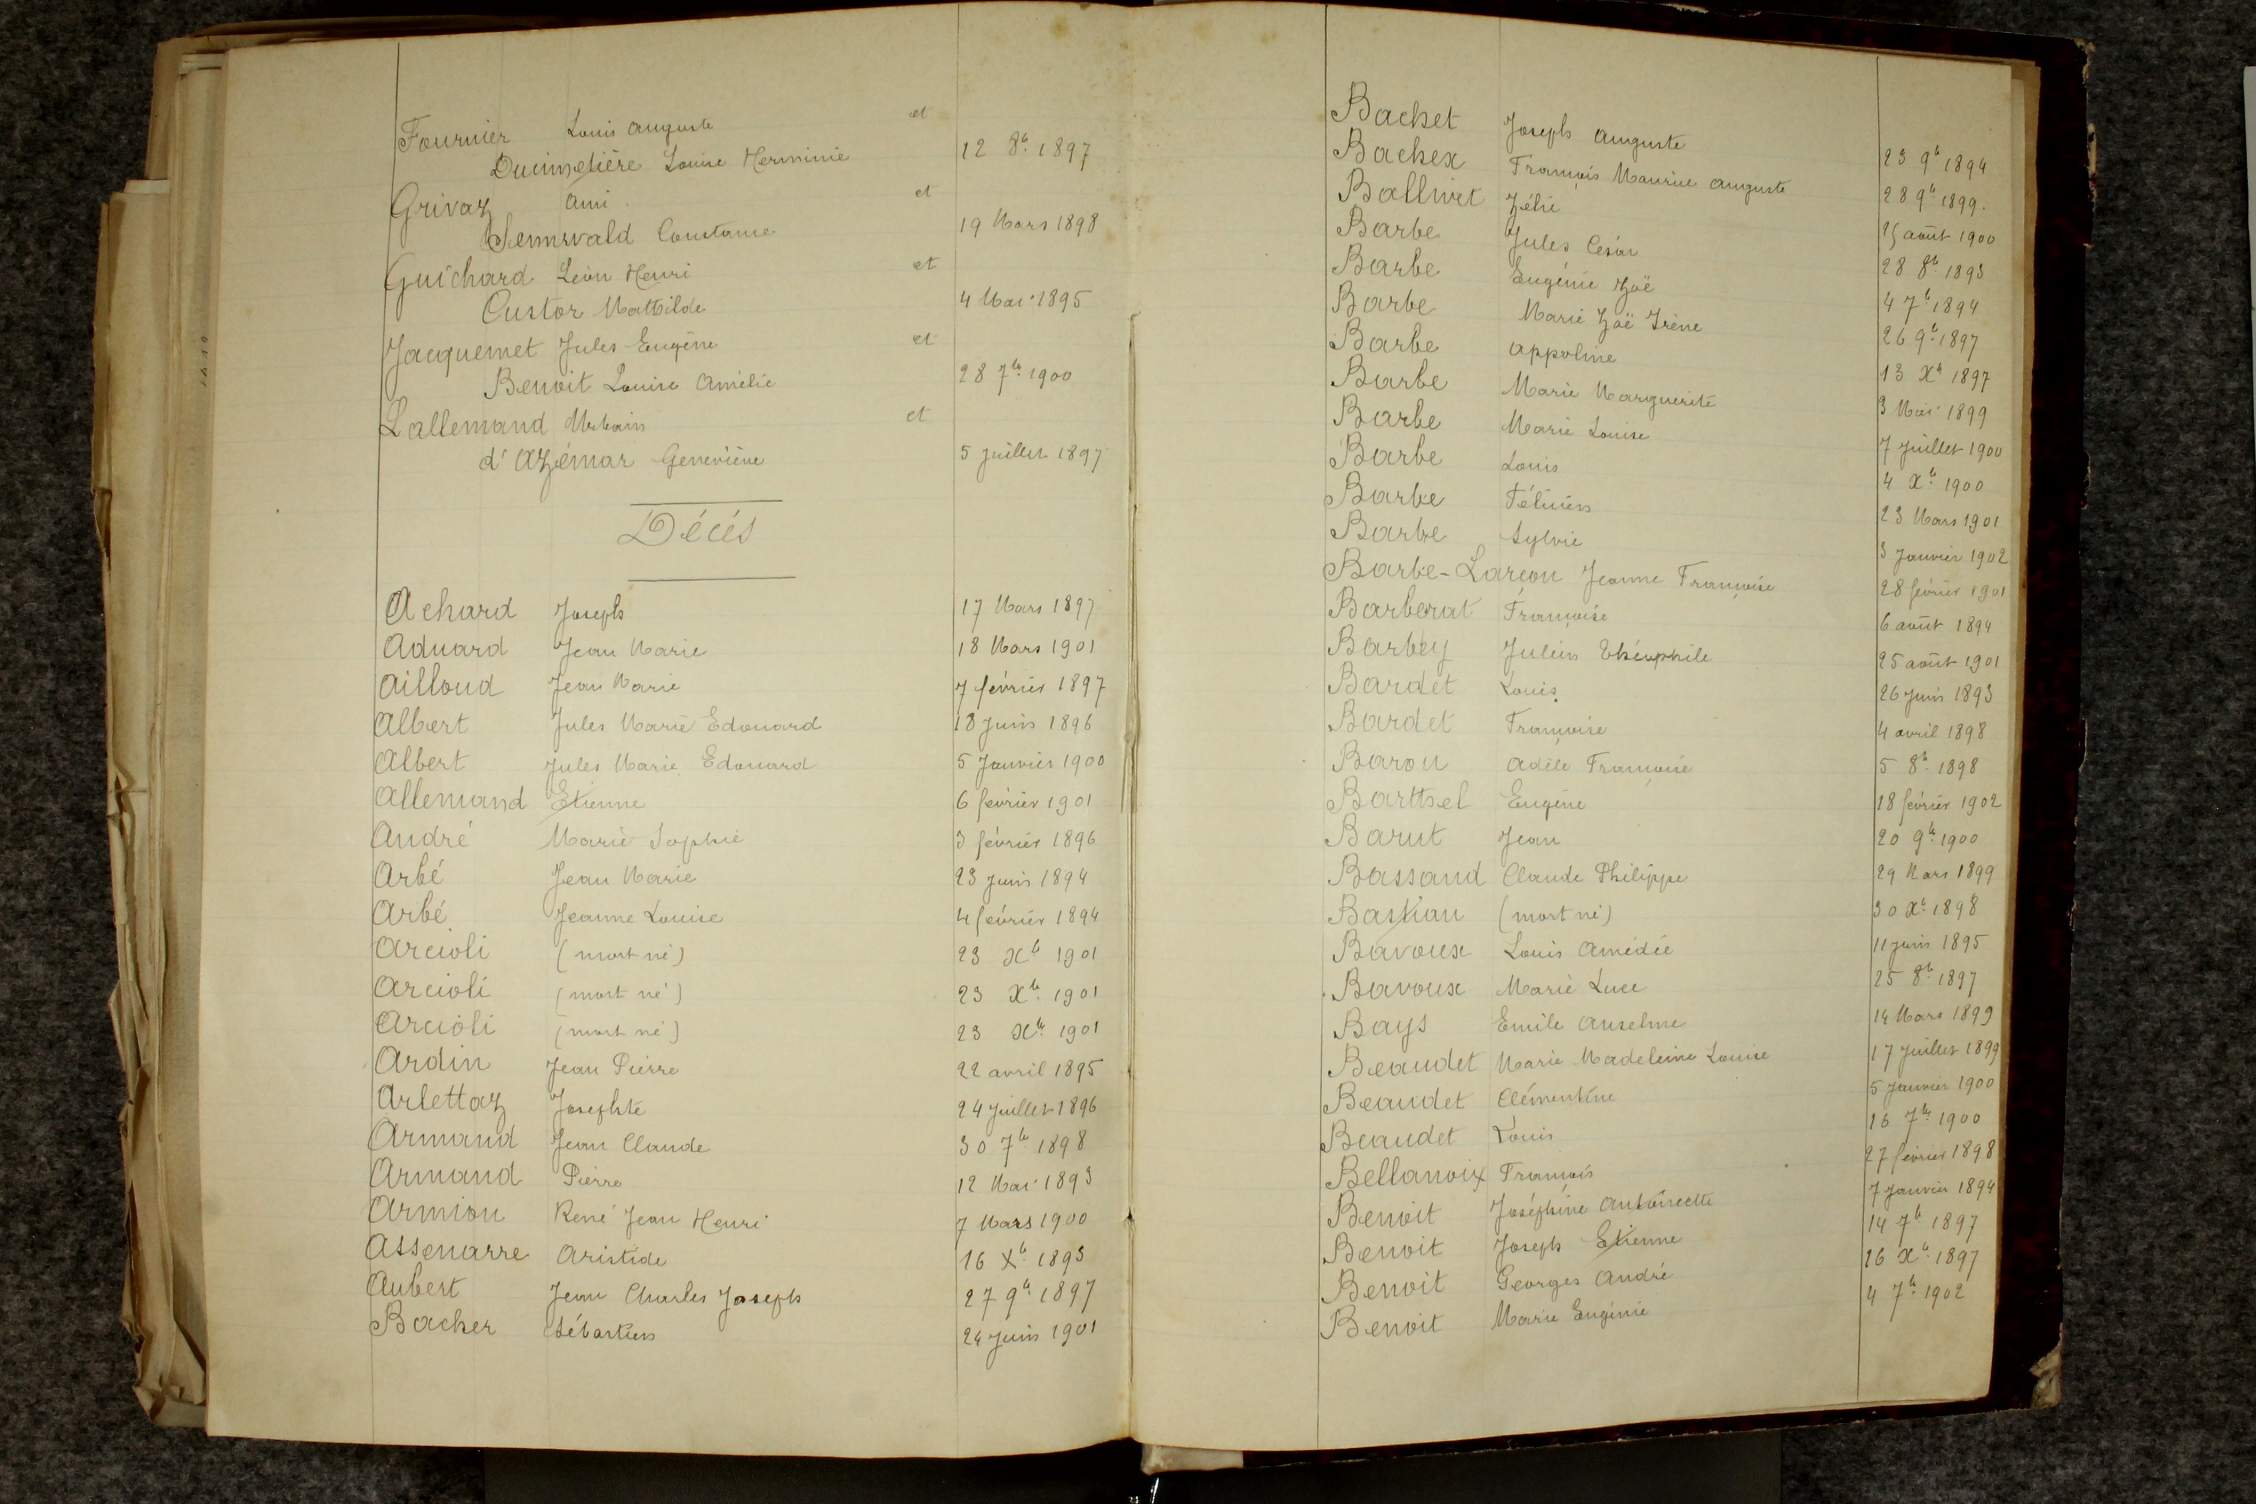 Fournier Louis Auguste et
Ducimetière Louise Herminie 12 8b 1897
Grivaz Ami et
Sennwald Constance 19 Mars 1898
Guichard Léon Henri et
Custor Mathilde 4 Mai 1895
Jacquemet Jules Eugène et
Benoit Louise Amélie 28 7b 1900
Lallemand Urbain et
d'Azémar Geneviève 5 juillet 1897
Décés
Achard Joseph 17 Mars 1897
Aduard Jean Marie 18 Mars 1901
Ailloud Jean Marie 7 février 1897
Albert Jules Marie Edouard 18 juin 1896
Albert Jules Marie Edouard 5 Janvier 1900
Allemand Etienne 6 février 1901
André Marie Sophie 3 février 1896
Arbé Jean Marie 23 juin 1894
Arbé Jeanne Louise 4 février 1894
Arcioli (mort né) 23 Xb 1901
Arcioli (mort né) 23 Xb 1901
Arcioli (mort né) 23 Xb 1901
Ardin Jean Pierre 22 avril 1895
Arlettaz Josephte 24 juillet 1896
Armand Jean Claude 30 7b 1898
Armand Pierre 12 Mai 1893
Armion René Jean Henri 7 Mars 1900
Assenarre Aristide 16 Xb 1893
Aubert Jean Charles Joseph 27 9b 1897
Bacher Sébastien 24 juin 1901
Bachet Joseph Auguste 23 9b 1894
Bachex François Maurice Auguste 28 9b 1899
Ballivet Zélie août 1900
Barbe Jules César 28 8b 1893
Barbe Eugénie Zoë 4 7b 1894
Barbe Marie Zoë Irène 26 9b 1897
Barbe Appoline 13 Xb 1897
Barbe Marie Marguerite 3 Mai 1899
Barbe Marie Louise 7 juillet 1900
Barbe Louis 4 Xb 1900
Barbe Félicien 23 Mars 1901
Barbe Sylvie 3 janvier 1902
Barbe-Larçon Jeanne Françoise 28 février 1901
Barberat Françoise 6 août 1894
Barbey Julien Théophile 25 août 1901
Bardet Louis 26 juin 1893
Bardet Françoise 4 avril 1898
Baron Adèle Françoise 5 8b 1898
Barthsel Eugène 18 février 1902
Barut Jean 20 9b 1900
Bassand Claude Philippe 29 Mars 1899
Bastian (mort né) 30 Xb 1898
Bavoux Louis Amédée 11 juin 1895
Bavoux Marie Luce 25 8b 1897
Bays Emile Anselme 14 Mars 1899
Beaudet Marie Madeleine Louise 17 juillet 1899
Beaudet Clémentine 5 janvier 1900
Beaudet Louis 16 7b 1900
Bellanoix François 27 février 1898
Benoit Joséphine Antoinette 7 janvier 1894
Benoit Joseph Etienne 14 7b 1897
Benoit Georges André 16 Xb 1897
Benoit Marie Eugénie 4 7b 1902